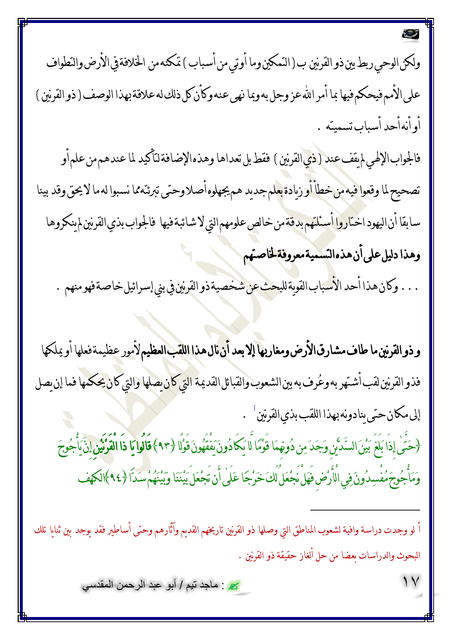 ولكن الوحي ربط بين ذو القرنين ب ( التمكين وما أوتي من أسباب ) تمكنه من الخلافة في الأرض والتطواف
على الأمم فيحكم فيها بما أمر الله عز وجل به وبما نهى عنه وكأن كل ذلك له علاقة بهذا الوصف ( ذو القرنين )
أو أنه أحد أسباب تسميته .
فالجواب الإلهي لم يقف عند ( ذي القرنين ) فقط بل تعداها وهذه الإضافة لتأكيد لما عندهم من علم أو
تصحيح لما وقعوا فيه من خطأ أو زيادة بعلم جديد هم يجهلوه أصلا وحتى تبرئته مما نسبوا له ما لا يحق وقد بينا
سابقا أن اليهود اختاروا أسئلتهم بدقة من خالص علومهم التي لا شائبة فيها فالجواب بذي القرنين لم ينكروها
وهذا دليل على أن هذه التسمية معروفة لخاصتهم
. . . وكان هذا أحد الأسباب القوية للبحث عن شخصية ذو القرنين في بني إسرائيل خاصة فهو منهم .
و ذو القرنين ما طاف مشارق الأرض ومغاربها إلا بعد أن نال هذا اللقب العظيم لأمور عظيمة فعلها أو يملكها
فذو القرنين لقب أشتهر به وعُرف به بين الشعوب والقبائل القديمة التي كان يصلها والتي كان يحكمها فما إن يصل
إلى مكان حتى ينادونه بهذا اللقب بذي القرنين أ .
(حَتَّى إِذَا بَلَغَ بَيْنَ السَّدَّيْنِ وَجَدَ مِن دُونِهِمَا قَوْمًا لَّا يَكَادُونَ يَفْقَهُونَ قَوْلًا (٩٣) قَالُوا يَا ذَا الْقَرْنَيْنِ إِنَّ يَأْجُوجَ
وَمَأْجُوجَ مُفْسِدُونَ فِي الْأَرْضِ فَهَلْ نَجْعَلُ لَكَ خَرْجًا عَلَى أَن تَجْعَلَ بَيْنَنَا وَبَيْنَهُمْ سَدًّا (٩٤) الكهف
أ لو وجدت دراسة وافية لشعوب المناطق التي وصلها ذو القرنين تاريخهم القديم وآثارهم وحتى أساطير فقد يوجد بين ثنايا تلك
البحوث والدراسات بعضا من حل ألغاز حقيقة ذو القرنين .
: ماجد تيم / أبو عبد الرحمن المقدسي
١٧